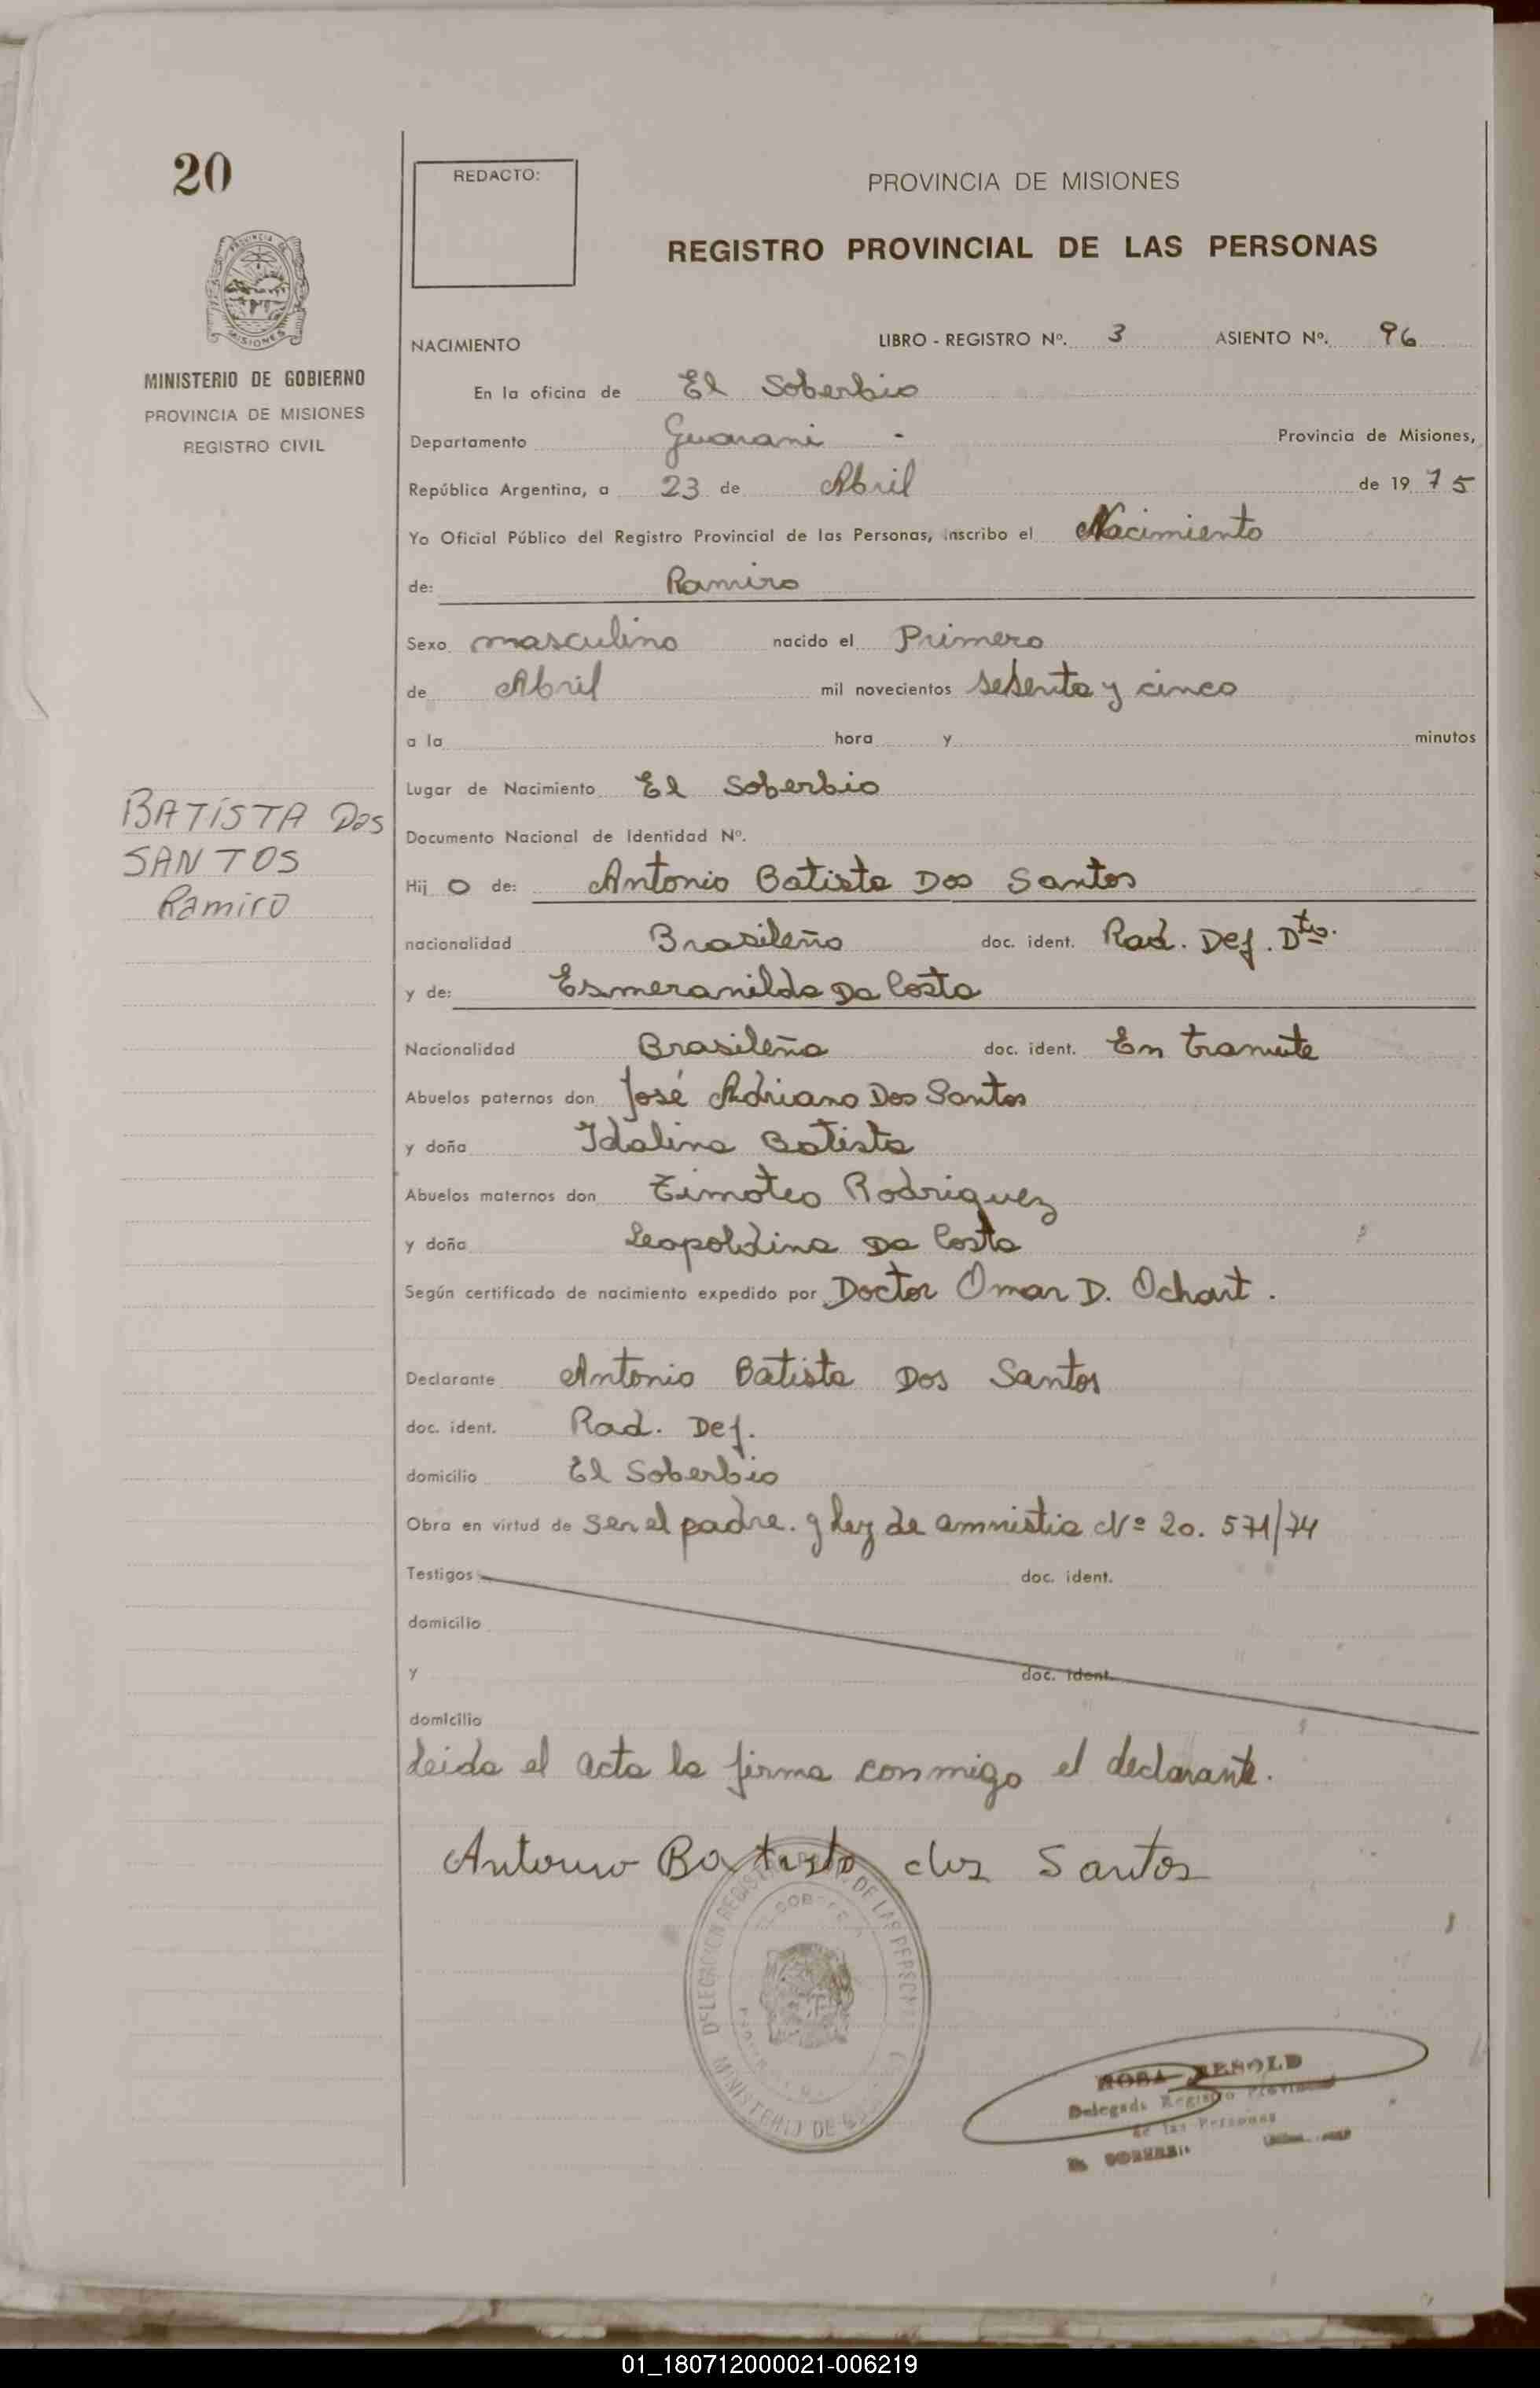 20
REDACTO:
PROVINCIA DE MISIONES
REGISTRO PROVINCIAL DE LAS PERSONAS
MINISTERIO DE GOBIERNO
PROVINCIA DE MISIONES
REGISTRO CIVIL
NACIMIENTO LIBRO - REGISTRO Nº. 3 ASIENTO Nº. 96
En la oficina de El Soberbio
Departamento Guarani - Provincia de Misiones,
República Argentina, a 23 de Abril de 19 75
Yo Oficial Público del Registro Provincial de las Personas, inscribo el Nacimiento
de: Ramiro
Sexo masculino nacido el Primero
de Abril mil novecientos sesenta y cinco
a la hora y minutos
Lugar de Nacimiento El Soberbio
BATISTA Dos
SANTOS
Ramiro
Documento Nacional de Identidad Nº.
Hij o de: Antonio Batista Dos Santos
nacionalidad Brasileño doc. ident. Rad. Def. Dto.
y de: Esmeranilda Da Costa
Nacionalidad Brasileña doc. ident. En tramite
Abuelos paternos don José Adriano Dos Santos
y doña Idalina Batista
Abuelos maternos don Timoteo Rodriguez
y doña Leopoldina Da Costa
Según certificado de nacimiento expedido por Doctor Omar D. Ochart.
Declarante Antonio Batista Dos Santos
doc. ident. Rad. Def.
domicilio El Soberbio
Obra en virtud de ser el padre. y ley de amnistia Nº 20. 571/74
Testigos doc. ident.
domicilio
y doc. ident.
domicilio
leida el acta la firma conmigo el declarante.
Antonio Batista dos Santos
DELEGACION REGISTRO DE LAS PERSONAS
MINISTERIO DE
ROSA
Delegada Registro Provincial
de las Personas
EL SOBERBIO
01_180712000021-006219